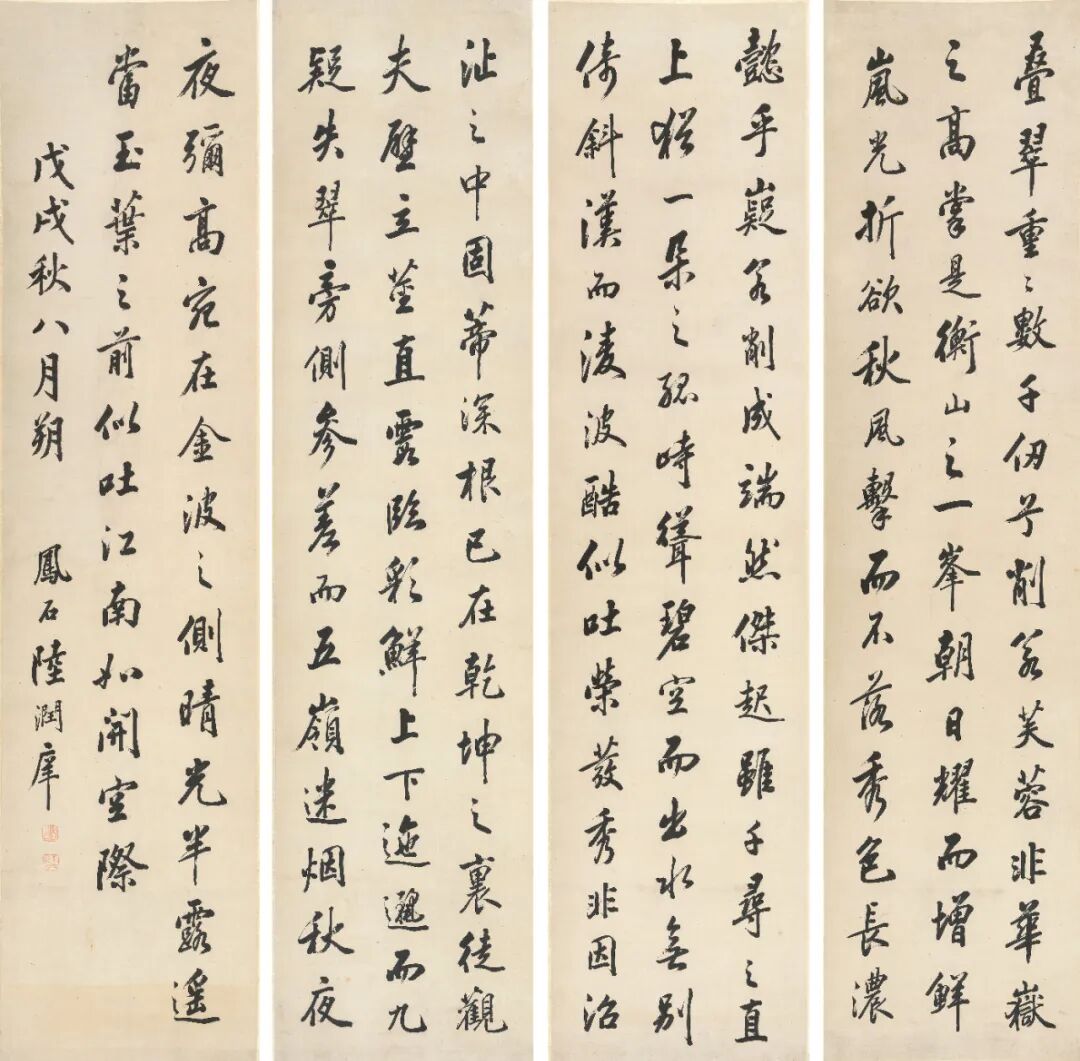 疊翠重〻數千仞兮削若芙蓉非華嶽
之高掌是衡山之一峯朝日耀而增鮮
嵐光折欲秋風擊而不落秀色長濃
懿乎嶷若削成端然傑起雖千尋之直
上猶一朵之孤時聳碧空而出水無別
倚斜漢而淩波酷似吐榮發秀非因沼
沚之中固蒂深根已在乾坤之裏徒觀
夫壁立莖直霞臨彩鮮上下迤邐而九
疑失翠旁側參差而五嶺迷烟秋夜
夜彌高宛在金波之側晴光半露遥
當玉葉之前似吐江南如開空際
戊戌秋八月朔 鳳石陸潤庠